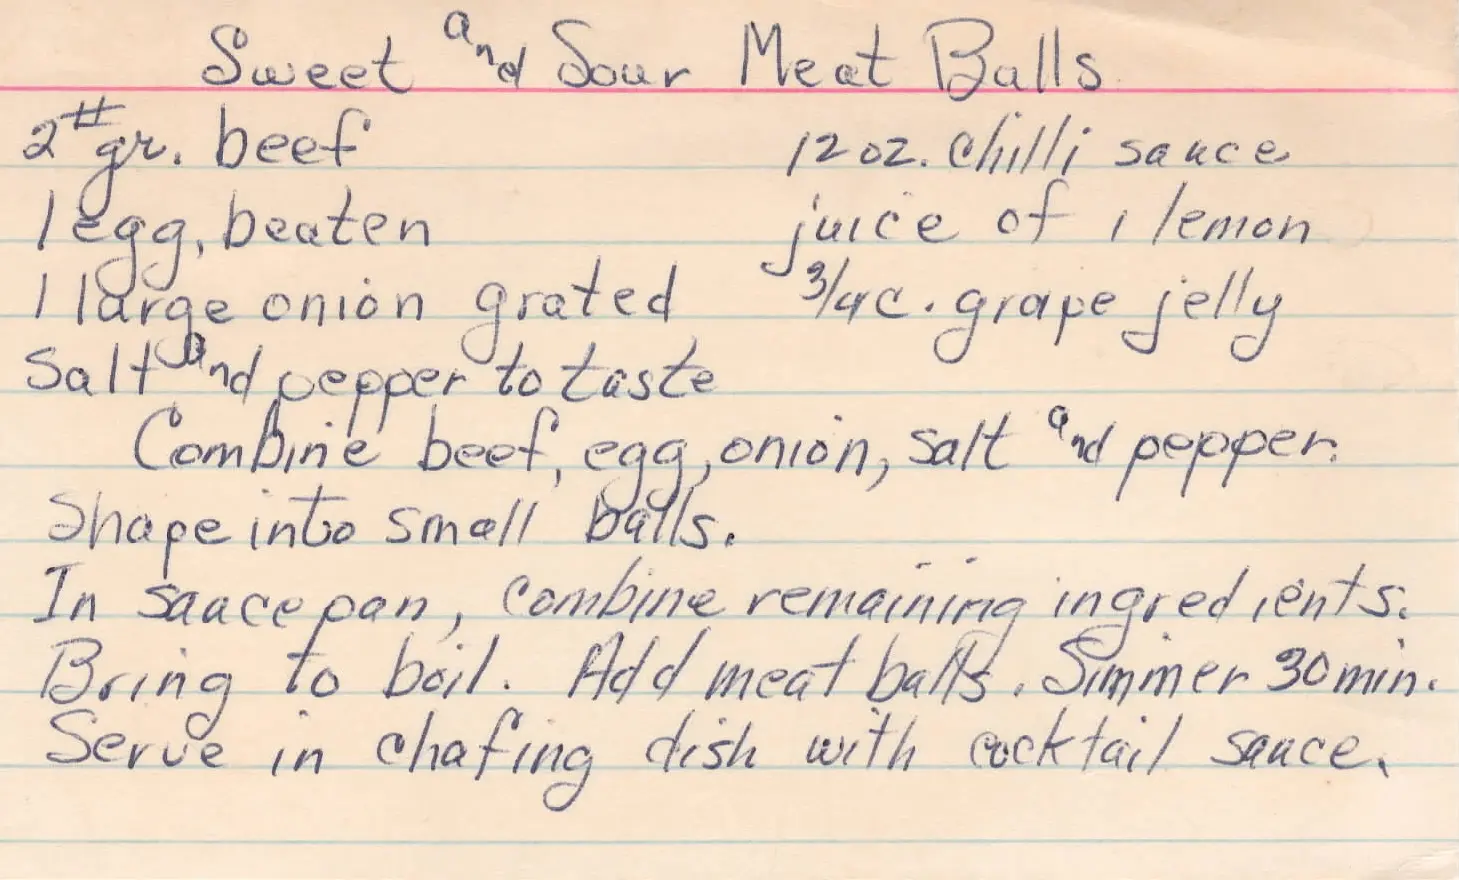 Sweet and Sour Meat Balls
2# gr. beef
1 egg, beaten
1 large onion grated
Salt and pepper to taste
12 oz. chilli sauce
juice of 1 lemon
3/4 c. grape jelly
Combine beef, egg, onion, salt and pepper.
Shape into small balls.
In saucepan, combine remaining ingredients.
Bring to boil. Add meat balls. Simmer 30 min.
Serve in chafing dish with cocktail sauce.